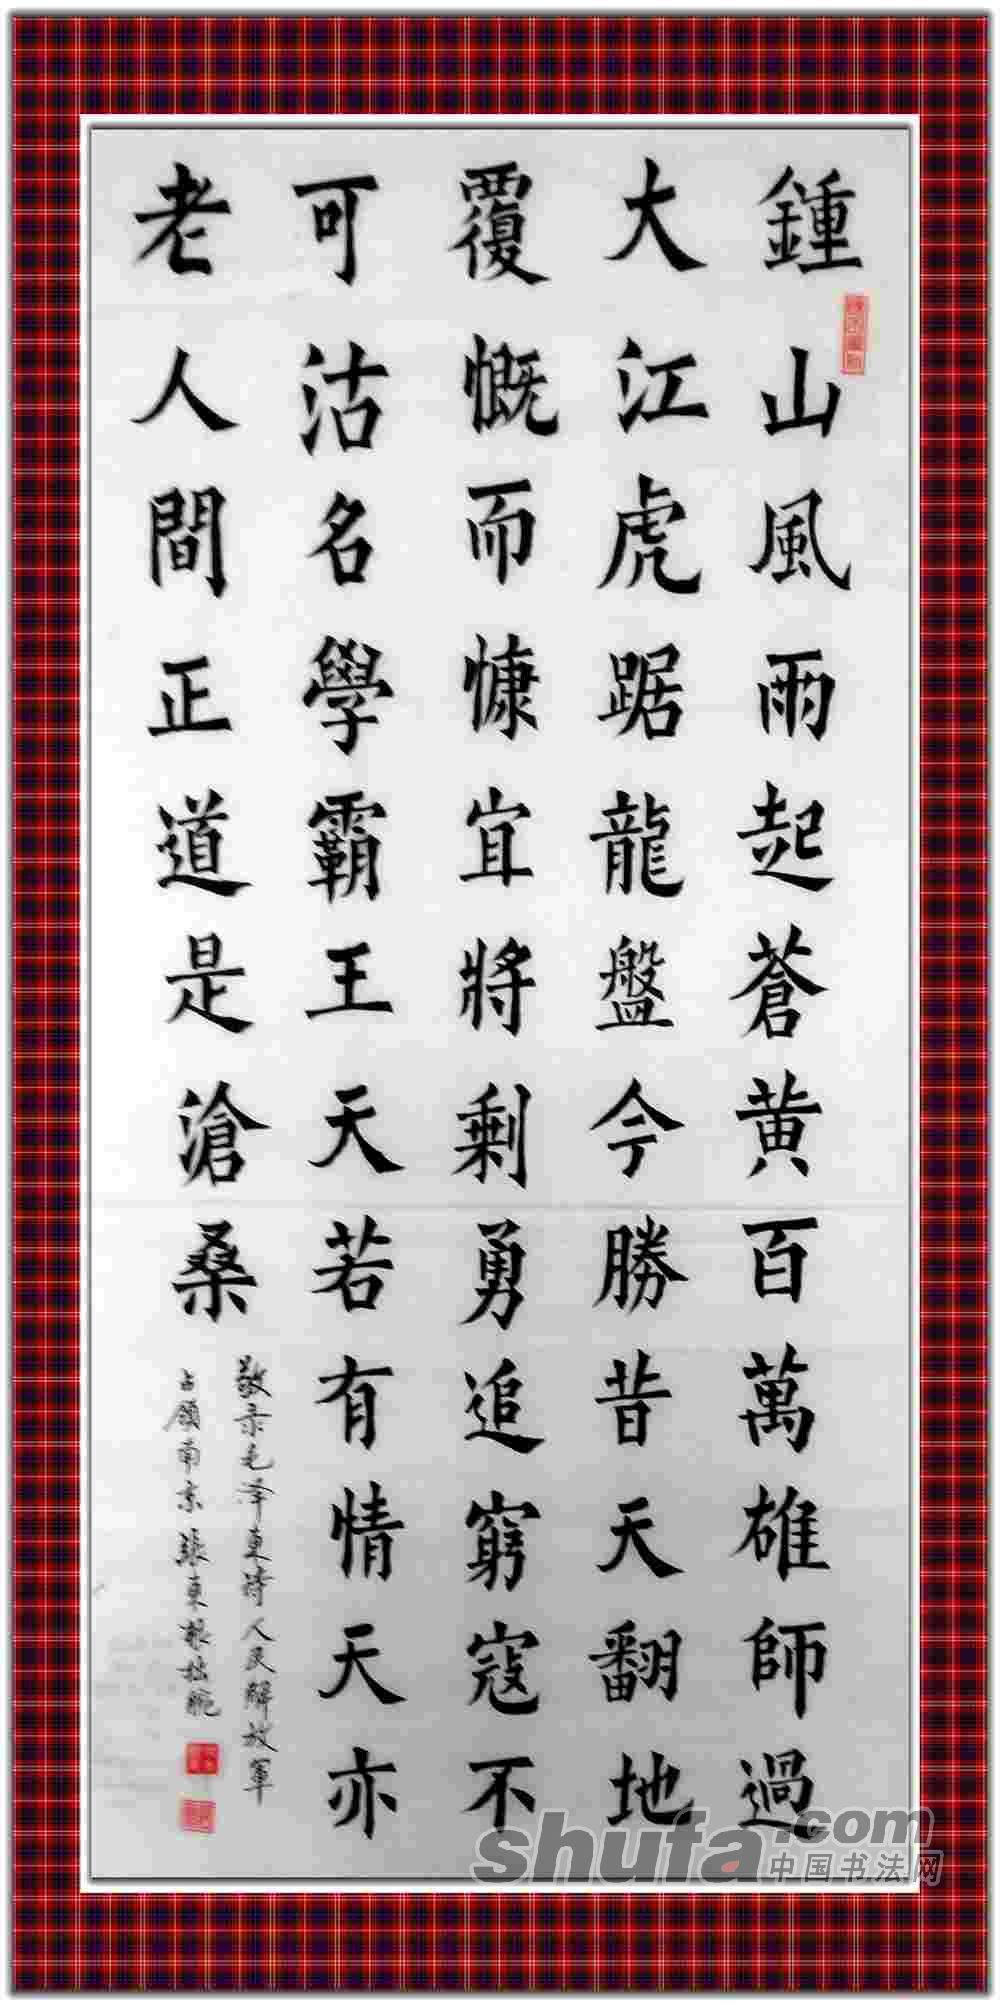 鍾山風雨起蒼黄百萬雄師過
大江虎踞龍盤今勝昔天翻地
覆慨而慷宜將剩勇追窮寇不
可沽名學霸王天若有情天亦
老人間正道是滄桑
敬录毛泽東诗人民解放軍
占領南京張東根拙腕
shufa.com
中国书法网